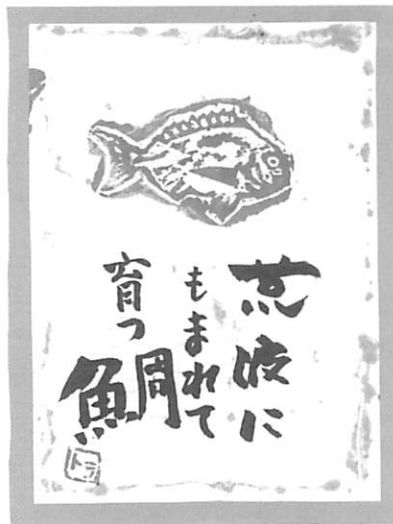 荒波に
もまれて
育つ
鯛
トラ